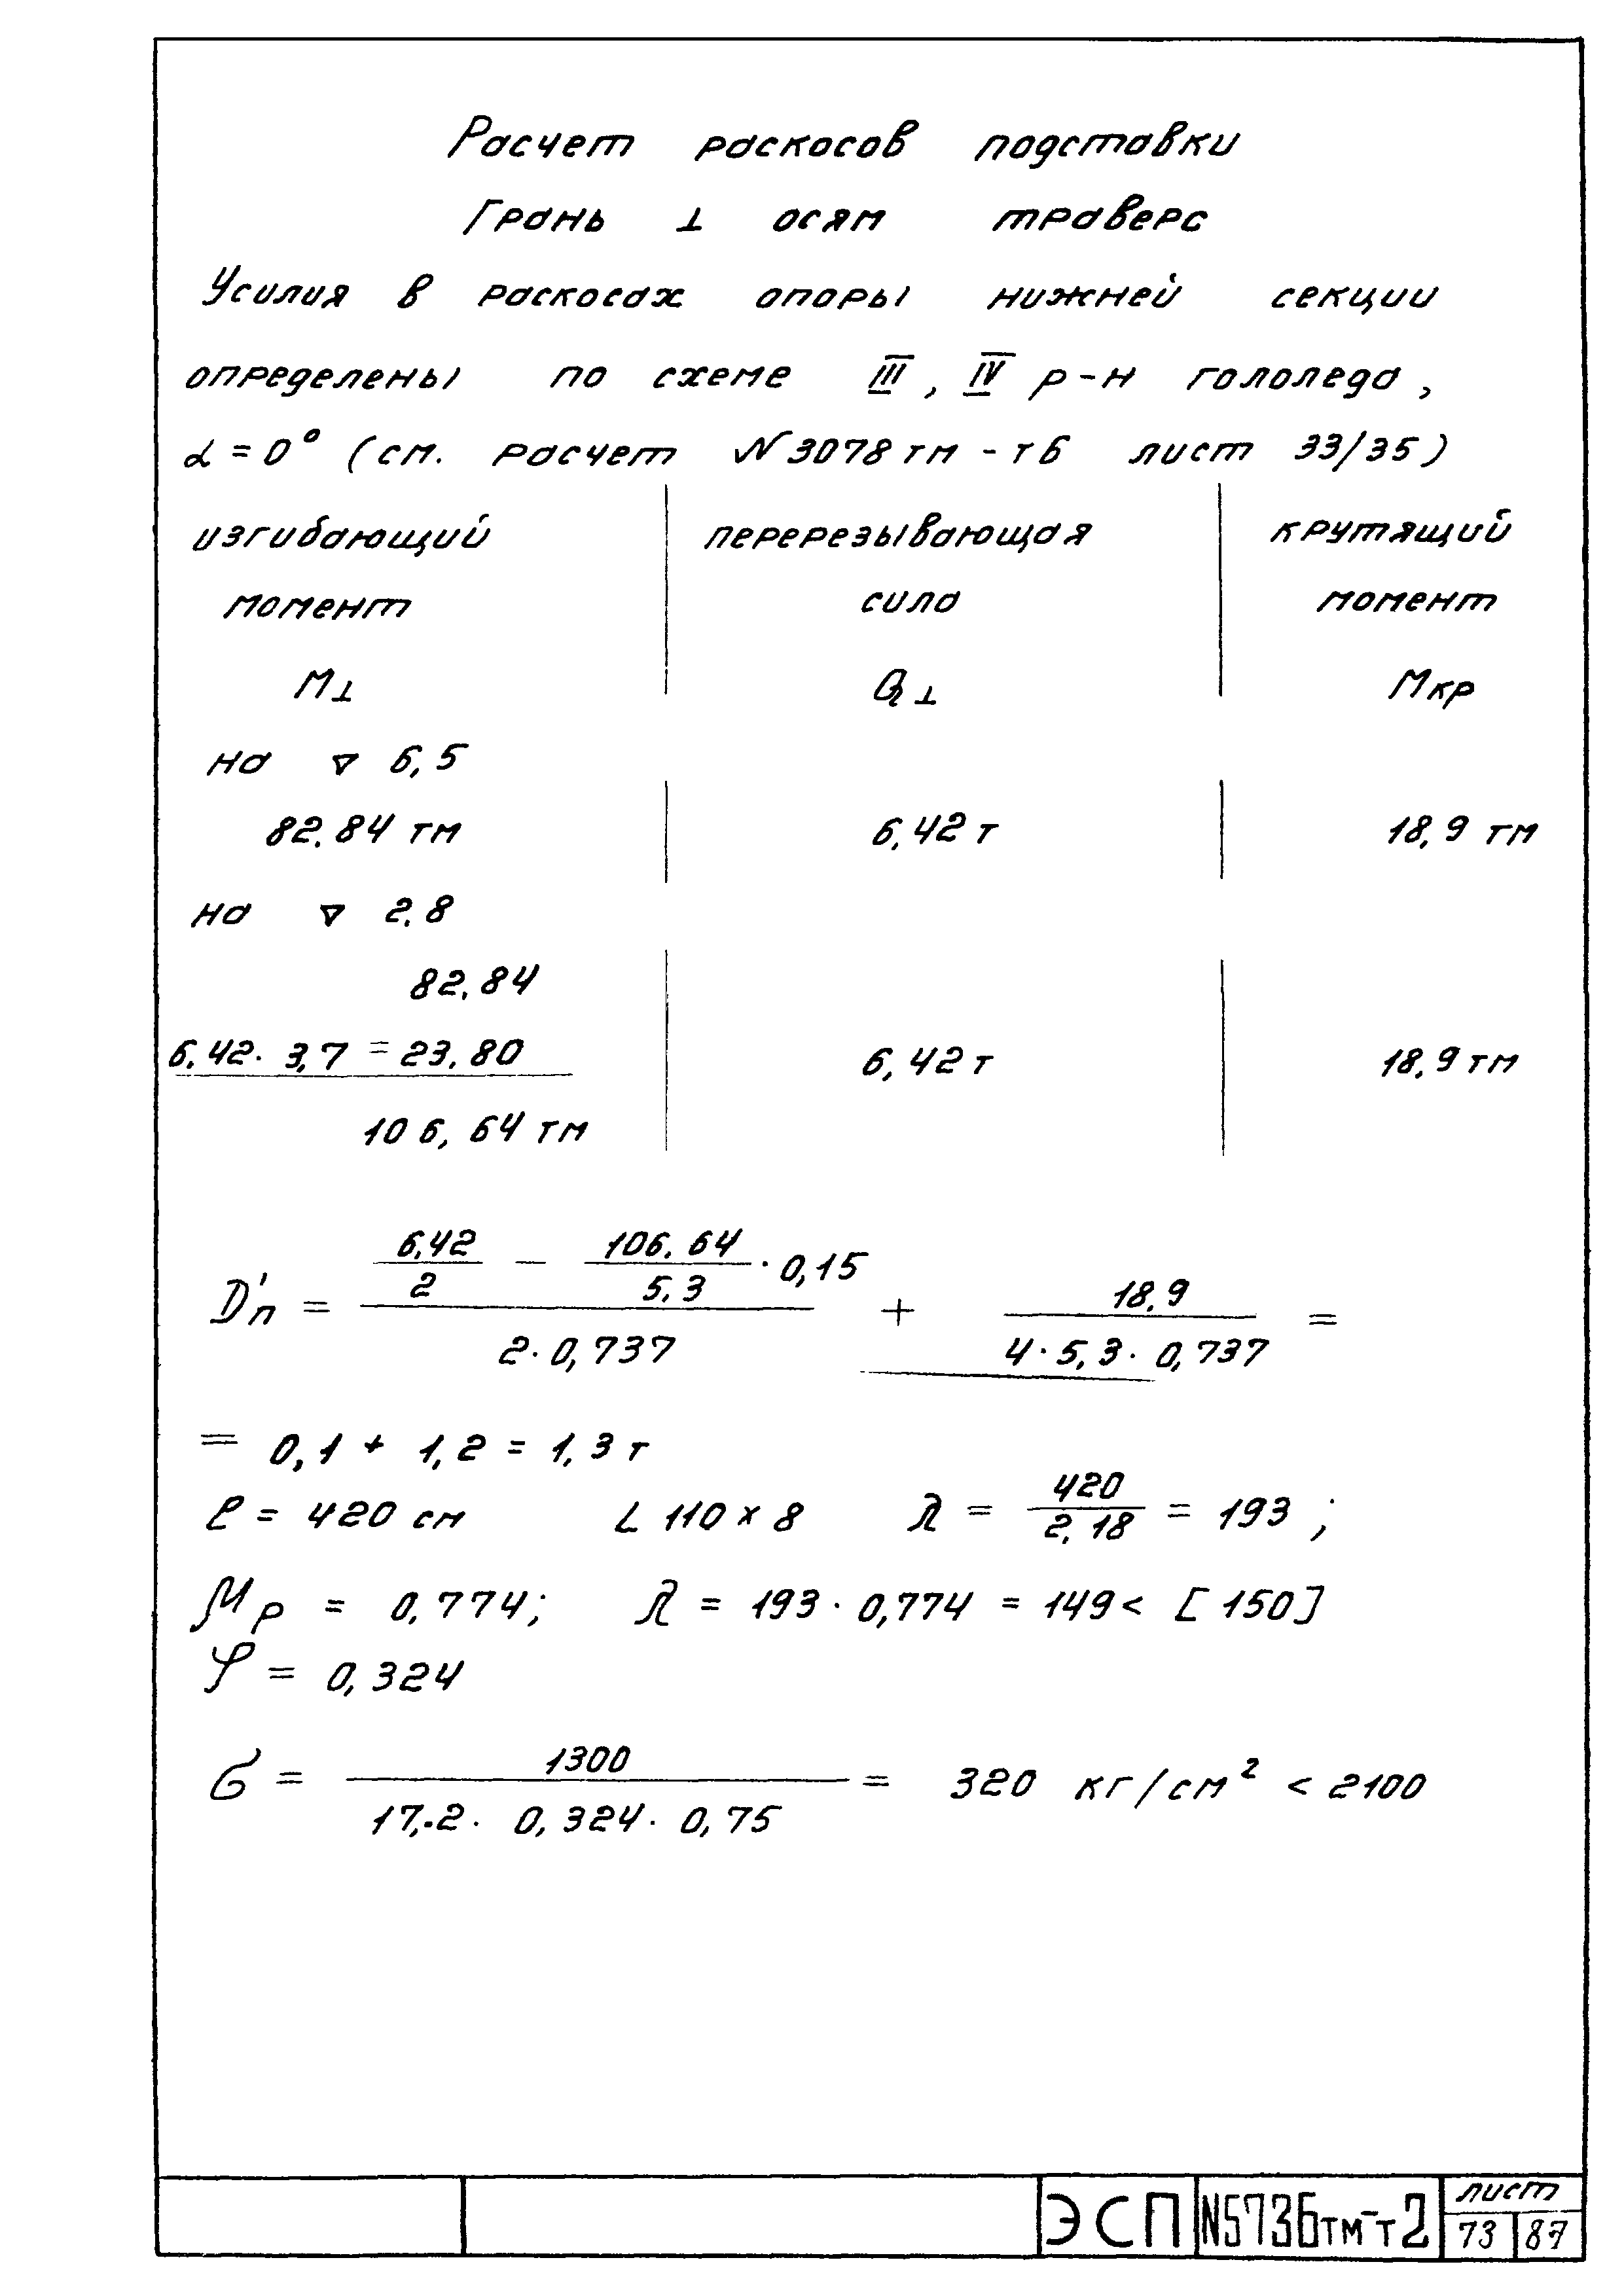 Расчет раскосов подставки
Грань ⊥ осям траверс
Усилия в раскосах опоры нижней секции
определены по схеме III, IV р-н гололеда,
α = 0° (см. расчет N 3078тм - т6 лист 33/35)
изгибающий перерезывающая крутящий
момент сила момент
M⊥ Q⊥ Мкр
на ▽ 6,5
82,84 тм 6,42 т 18,9 тм
на ▽ 2,8
82,84
6,42 · 3,7 = 23,80 6,42 т 18,9 тм
106,64 тм
6,42 / 2 − 106,64 / 5,3 · 0,15
D'п = ――― + 18,9 / (4 · 5,3 · 0,737) =
2 · 0,737
= 0,1 + 1,2 = 1,3 т
ℓ = 420 см L 110 × 8 λ = 420 / 2,18 = 193 ;
μр = 0,774; λ = 193 · 0,774 = 149 < [150]
φ = 0,324
σ = 1300 / (17,2 · 0,324 · 0,75) = 320 кг/см² < 2100
ЭСП N5736тм-т2 лист
73 87